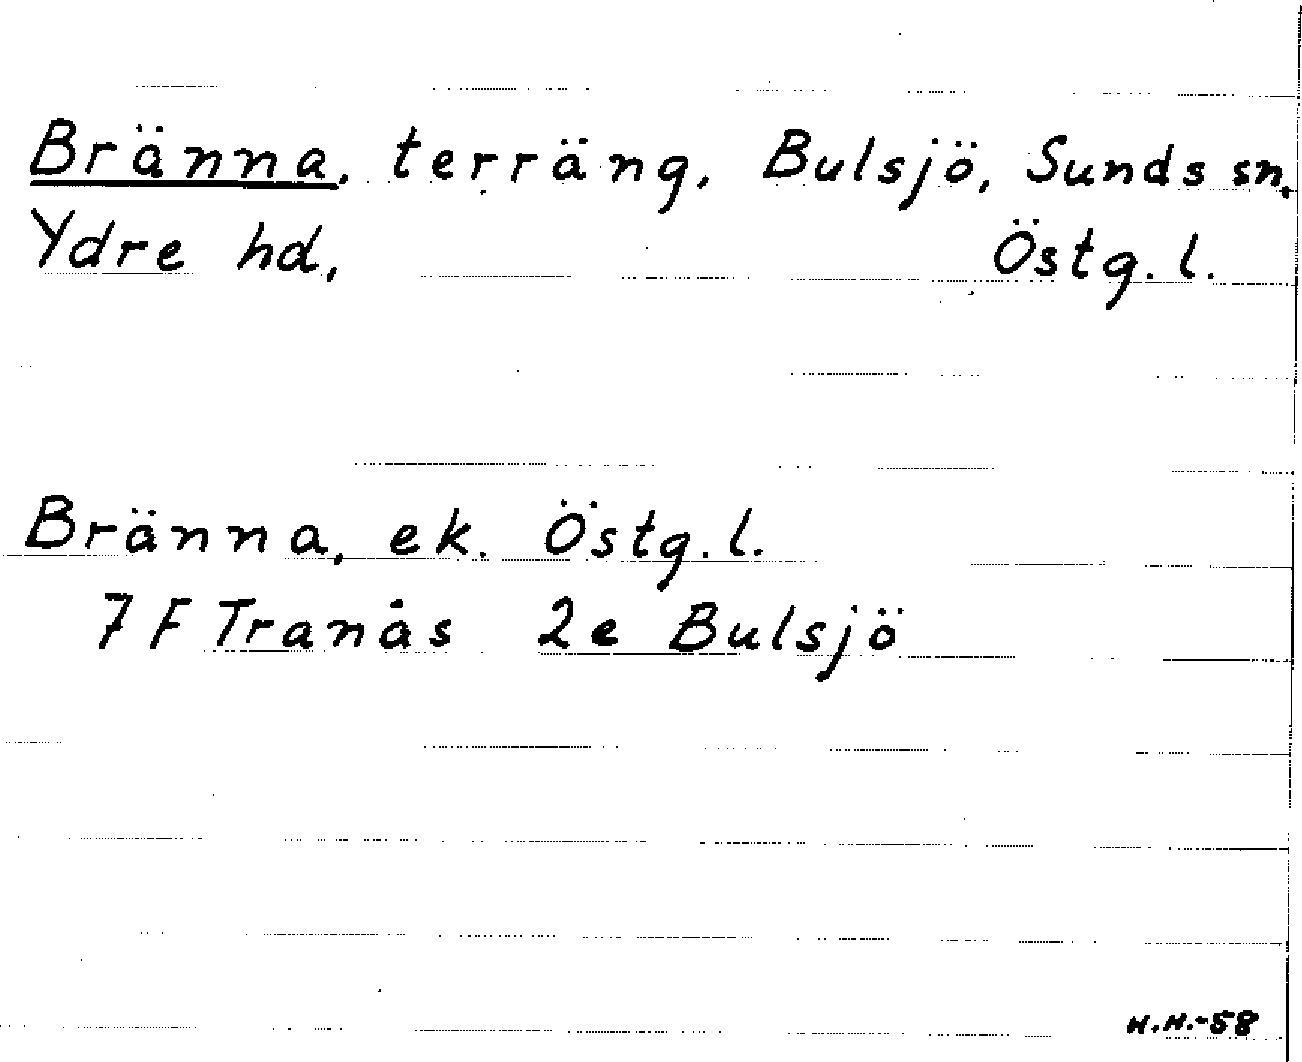 Bränna, terräng, Bulsjö, Sunds sn,
Ydre hd, Östg. l.
Bränna, ek. Östg. l.
7 F Tranås 2e Bulsjö
H.H.-58